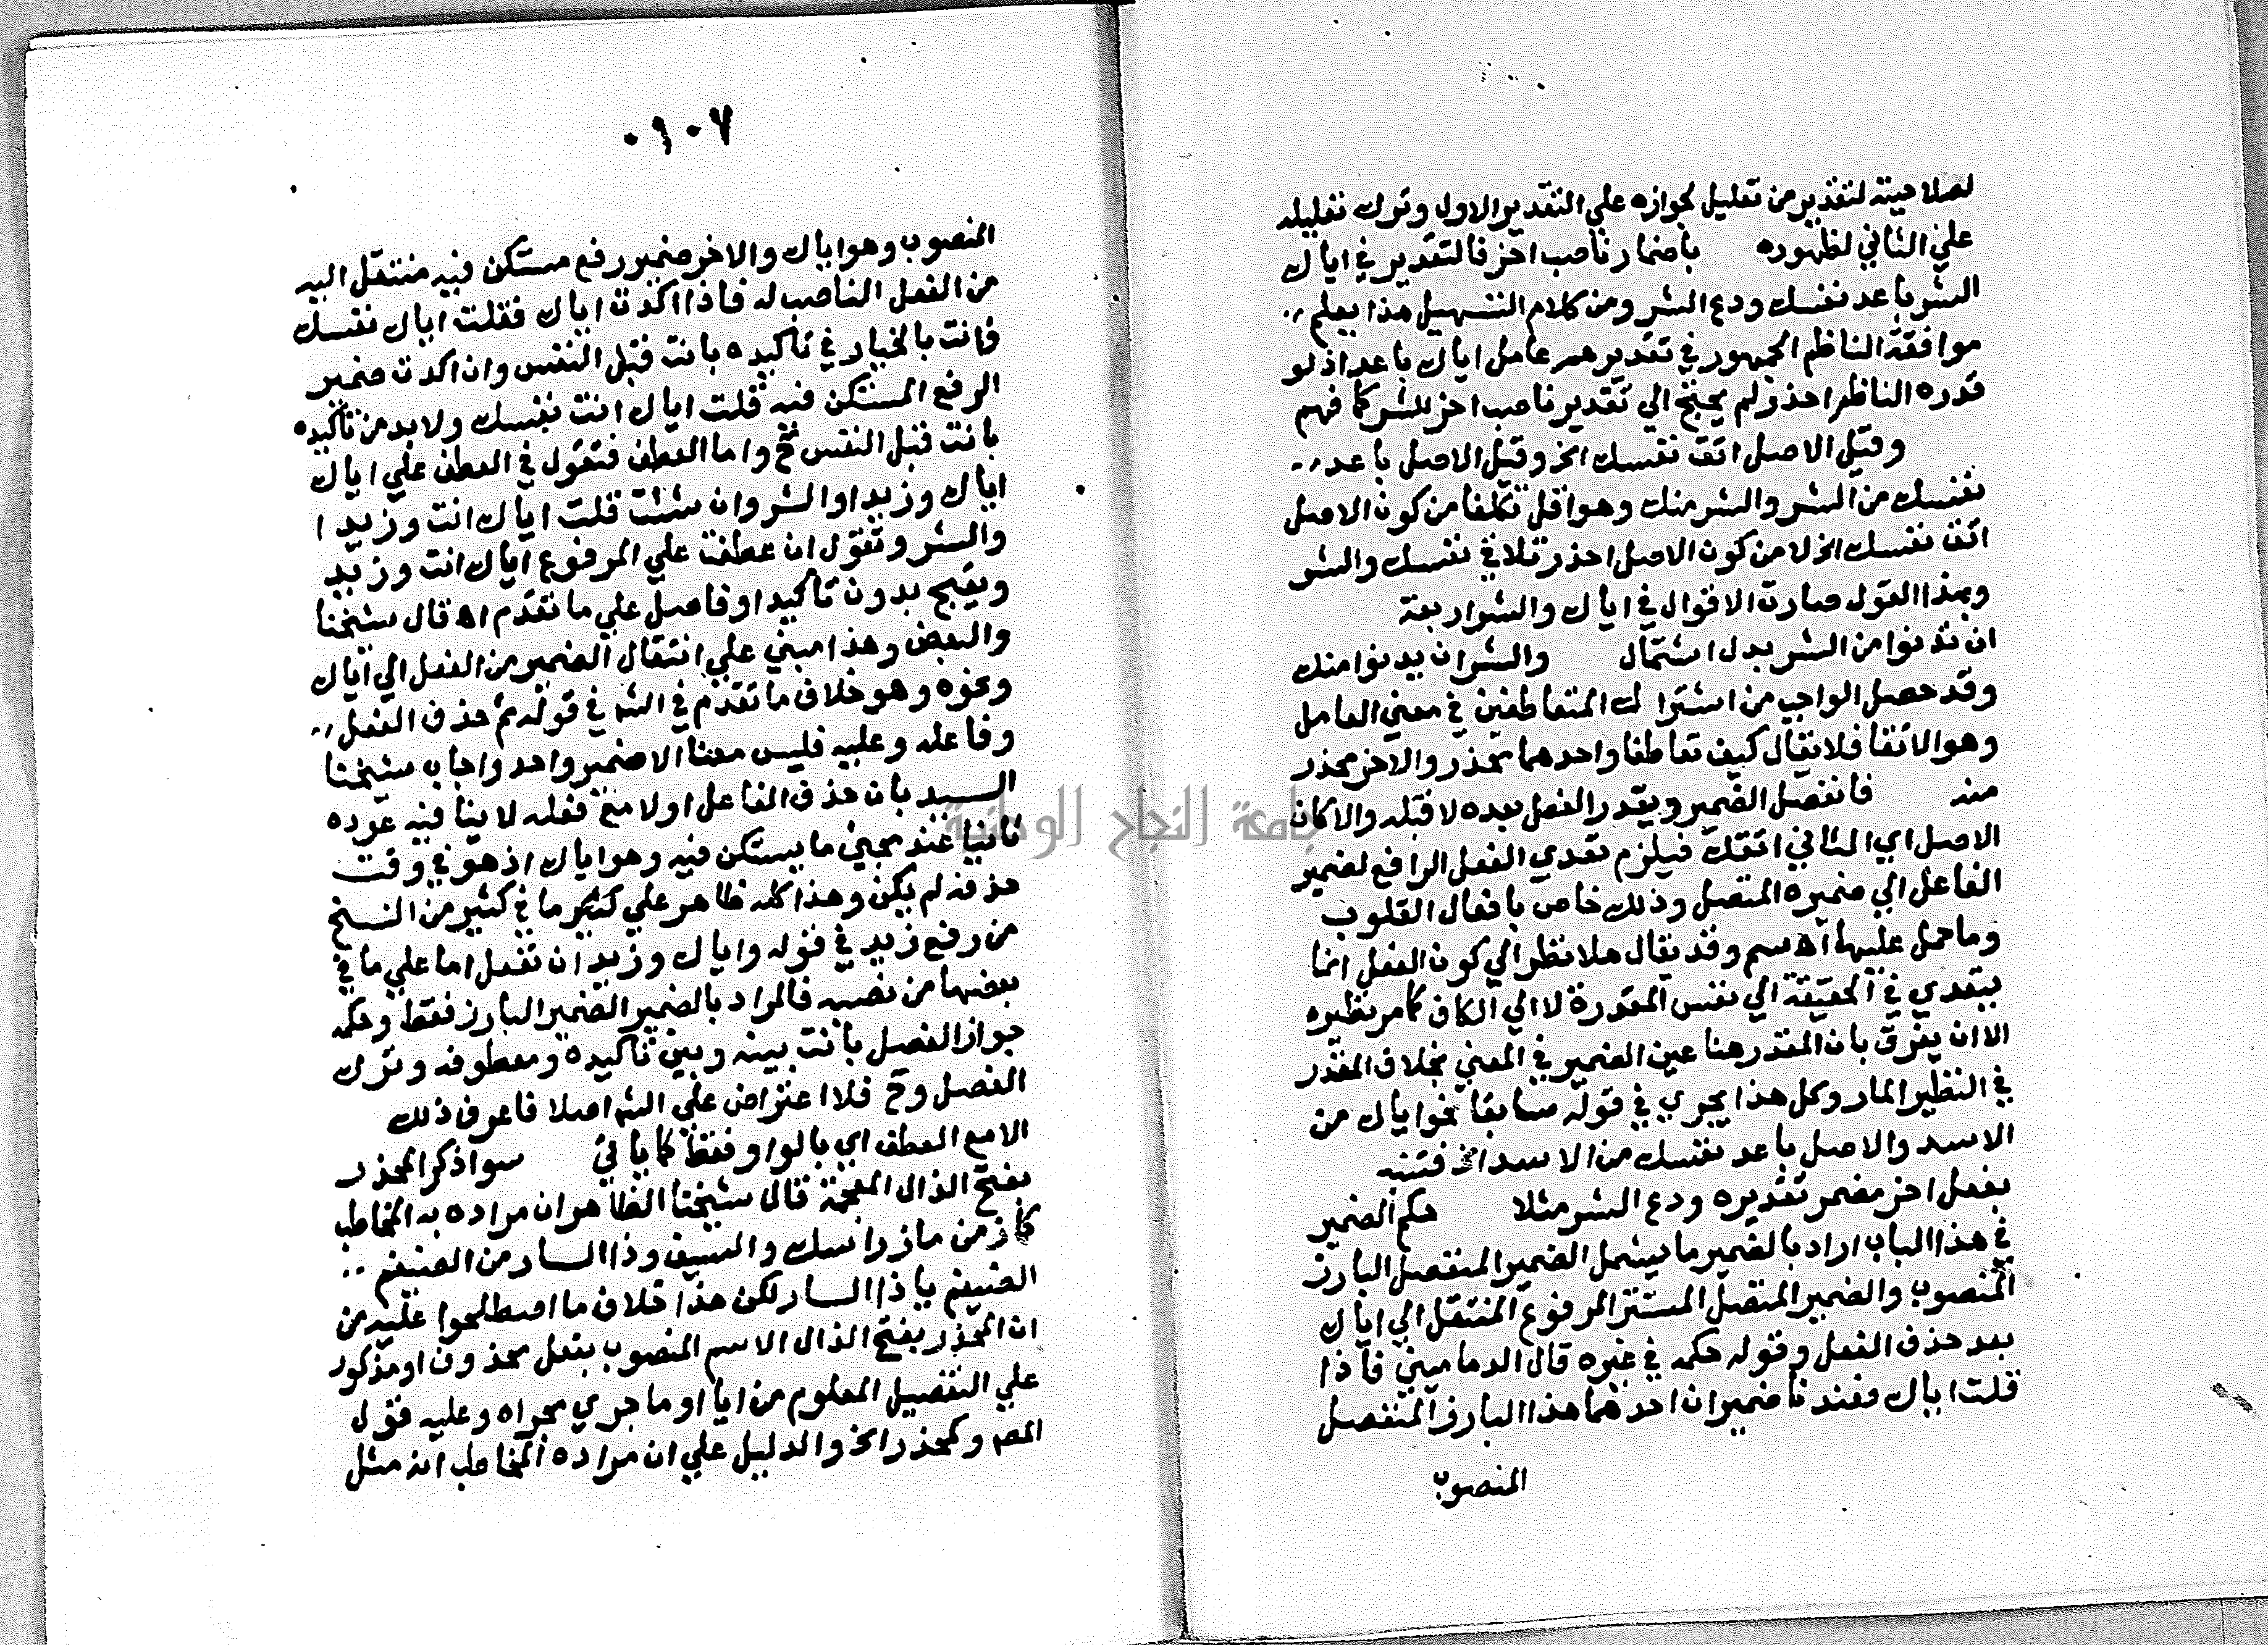 لصلاحيته لتقدير من تعليل لجوازه علي التقدير الاول وترك تعليله
علي الثاني لظهوره باضمار ناصب اخر فالتقدير في اياك
الشر باعد نفسك ودع الشر ومن كلام التسهيل هذا يعلم
موافقة الناظم الجمهور في تقديرهم عامل اياك باعد اذ لو
قدره الناظم احذر لم يحتج الي تقدير ناصب اخر للشر كما فهم
وقيل الاصل اتق نفسك الخ وقيل الاصل باعد
نفسك من الشر والشر منك وهو اقل تكلفا من كون الاصل
اتق نفسك الخ لا من كون الاصل احذر تلاقي نفسك والشر
وبهذا القول صارت الاقوال في اياك والشر اربعة
ان تدنوا من الشر بدل اشتمال والشر ان يدنوا منك
وقد حصل الواجب من اشتراك المتعاطفين في معني العامل
وهو الاتقا فلا يقال كيف تعاطفا واحدهما محذر والاخر محذر
منه فانفصل الضمير ويقدر الفعل بعده لا قبله والا كان
الاصل اي الثاني اتقك فيلزم تعدي الفعل الرافع لضمير
الفاعل الي ضميره المتصل وذلك خاص بافعال القلوب
وما حمل عليها اه سم وقد يقال هلا نظر الي كون الفعل انما
يتعدي في الحقيقة الي نفس المقدرة لا الي الكاف كما مر نظيره
الا ان يفرق بان المقدر هنا عين الضمير في المعني بخلاف المقدر
في النظير المار وكل هذا يجري في قوله سابقا نحو اياك من
الاسد والاصل باعد نفسك من الاسد الخ فتنبه
بفعل اخر مضمر تقديره ودع الشر مثلا حكم الضمير
في هذا الباب اراد بالضمير ما يشمل الضمير المنفصل البارز
المنصوب والضمير المتصل المستتر المرفوع المنتقل الي اياك
بعد حذف الفعل وقوله حكمه في غيره قال الدماميني فاذا
قلت اياك فعندنا ضميران احدهما هذا البارز المنفصل
المنصوب
٠١٠٧
المنصوب وهو اياك والاخر ضمير رفع مستكن فيه منتقل اليه
من الفعل الناصب له فاذا اكدت اياك فقلت اياك نفسك
فانت بالخيار في تاكيده بانت قبل النفس وان اكدت ضمير
الرفع المستكن فيه قلت اياك انت نفسك ولا بد من تاكيده
بانت قبل النفس واما العطف فتقول في العطف علي اياك
اياك وزيدا والشر وان شئت قلت اياك انت وزيدا
والشر وتقول ان عطفت علي المرفوع اياك انت وزيد
ويقبح بدون تاكيد او فاصل علي ما تقدم اه قال شيخنا
والبعض وهذا مبني علي انتقال الضمير من الفعل الي اياك
ونحوه وهو خلاف ما تقدم في الشم في قوله ثم حذف الفعل
وفاعله وعليه فليس معنا الا ضمير واحد واجاب شيخنا
السيد بان حذف الفاعل اولا مع فعله لا ينافيه عوده
ثانيا عند مجيئ ما يستكن فيه وهو اياك اذ هو في وقت
حذفه لم يكن وهذا كله ظاهر علي ما في كثير من النسخ
من رفع زيد في قوله واياك وزيد ان تفعل اما علي ما في
بعضها من نصبه فالمراد بالضمير الضمير البارز فقط وحكمه
جواز الفصل بانت بينه وبين تاكيده ومعطوفه وترك
الفصل وح فلا اعتراض علي الشم اصلا فاعرف ذلك
الا مع العطف اي بالواو فقط كما ياتي سوا ذكر المحذر
بفتح الذال المعجمة قال شيخنا الظاهر ان مراده به المخاطب
كمازن من ماز راسك والسيف وذا السار من الضيغم
الضيغم ياذا السار لكن هذا خلاف ما اصطلحوا عليه من
ان المحذر بفتح الذال الاسم المنصوب بفعل محذوف او مذكور
علي التفصيل المعلوم من ايا او ما جري مجراه وعليه فقول
المصم وكمحذر الخ والدليل علي ان مراده المخاطب انه مثل
جامعة النجاح الوطنية